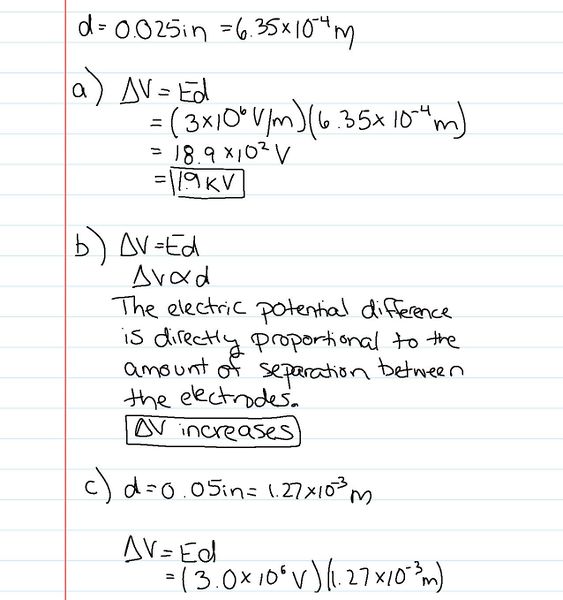 d= 0.025in =6.35×10⁻⁴ m
a) ΔV = Ed
= (3×10⁶ V/m)(6.35×10⁻⁴m)
= 18.9 ×10² V
= 1.9 KV
b) ΔV=Ed
ΔV∝d
The electric potential difference
is directly proportional to the
amount of separation between
the electrodes.
ΔV increases
c) d=0.05in= 1.27×10⁻³ m
ΔV=Ed
=(3.0×10⁶ V)(1.27×10⁻³m)